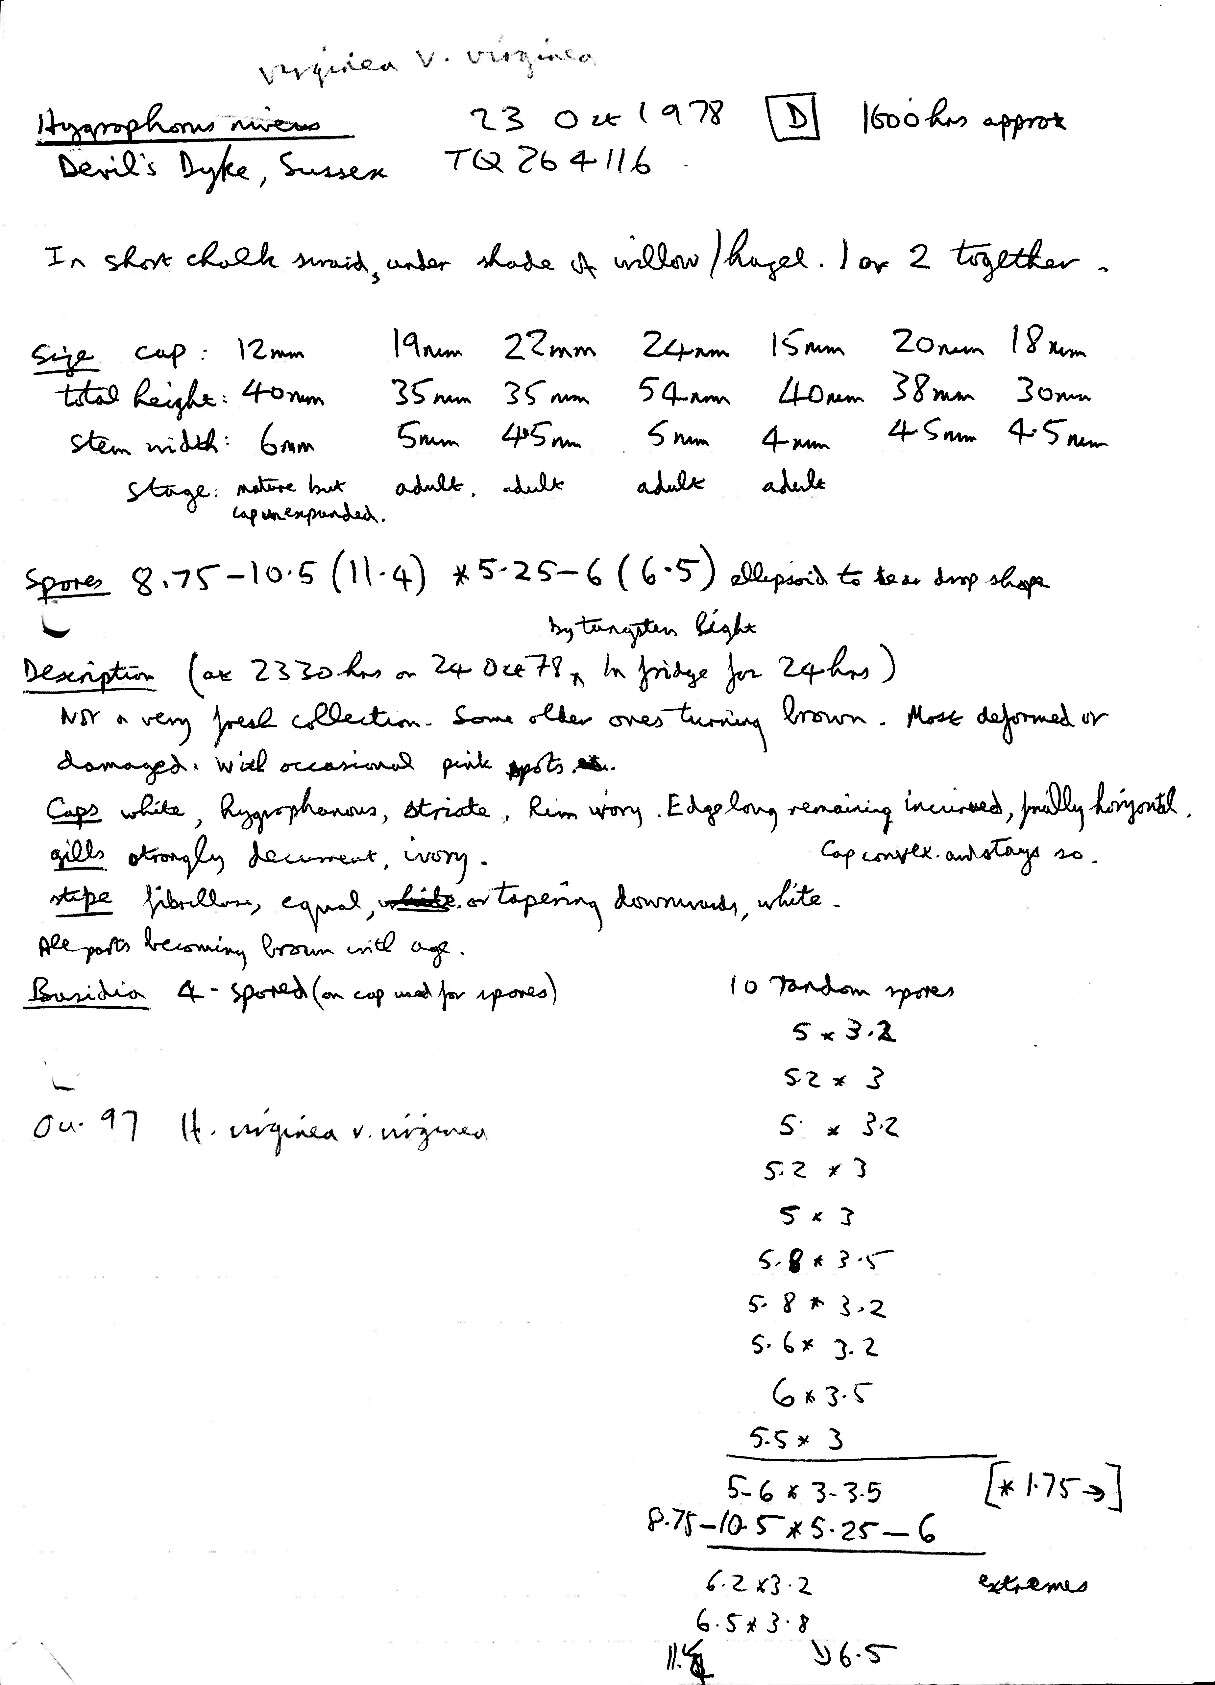 virginea v. virginea
Hygrophorus niveus 23 Oct 1978 D 1600hrs approx
Devil's Dyke, Sussex TQ 264116.
In short chalk sward, under shade of willow/hazel. 1 or 2 together.
Size cap: 12mm 19mm 22mm 24mm 15mm 20mm 18mm
total height: 40mm 35mm 35mm 54mm 40mm 38mm 30mm
stem width: 6mm 5mm 4.5mm 5mm 4mm 4.5mm 4.5mm
Stage: mature but adult. adult adult adult
cap unexpanded.
Spores 8.75-10.5 (11.4) * 5.25-6 (6.5) ellipsoid to tear drop shape
by tungsten light
Description (at 2330hrs on 24 Oct 78, In fridge for 24hrs)
Not a very fresh collection. Some older ones turning brown. Most deformed or
damaged. With occasional pink spots.
Caps white, hygrophanous, striate, Rim ivory. Edge long remaining incurved, finally horizontal.
Cap convex and stays so.
gills strongly decurrent, ivory.
stipe fibrillose, equal, or tapering downwards, white.
All parts becoming brown with age.
Basidia 4-spored (on cap used for spores)
10 random spores
5 * 3.2
5.2 * 3
5. * 3.2
5.2 * 3
Oct. 97 H. virginea v. virginea
5 * 3
5.8 * 3.5
5.8 * 3.2
5.6 * 3.2
6 * 3.5
5.5 * 3
5-6 * 3-3.5 [* 1.75 →]
8.75-10.5 * 5.25-6
6.2 * 3.2 extremes
6.5 * 3.8
11.4 6.5